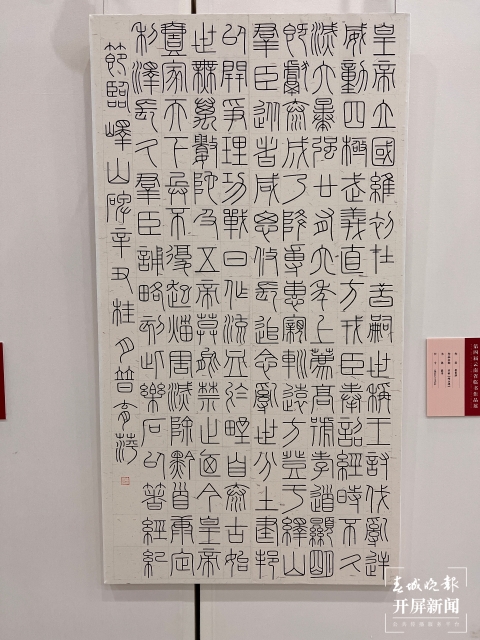 皇帝立國維初在昔嗣世稱王討伐亂逆
威動四極武義直方戎臣奉詔經時不久
滅六暴強廿有六年上薦高號孝道顯明
既獻泰成乃降專惠親巡遠方登于繹山
羣臣從者咸思攸長追念亂世分土建邦
以開爭理功戰日作流血於野自泰古始
世無萬數陀及五帝莫能禁止迺今皇帝
壹家天下兵不復起災害滅除黔首康定
利澤長久羣臣誦略刻此樂石以箸經紀
節臨嶧山碑辛丑桂月普育
第四届云南省临书作品展
春城晚报
开屏新闻